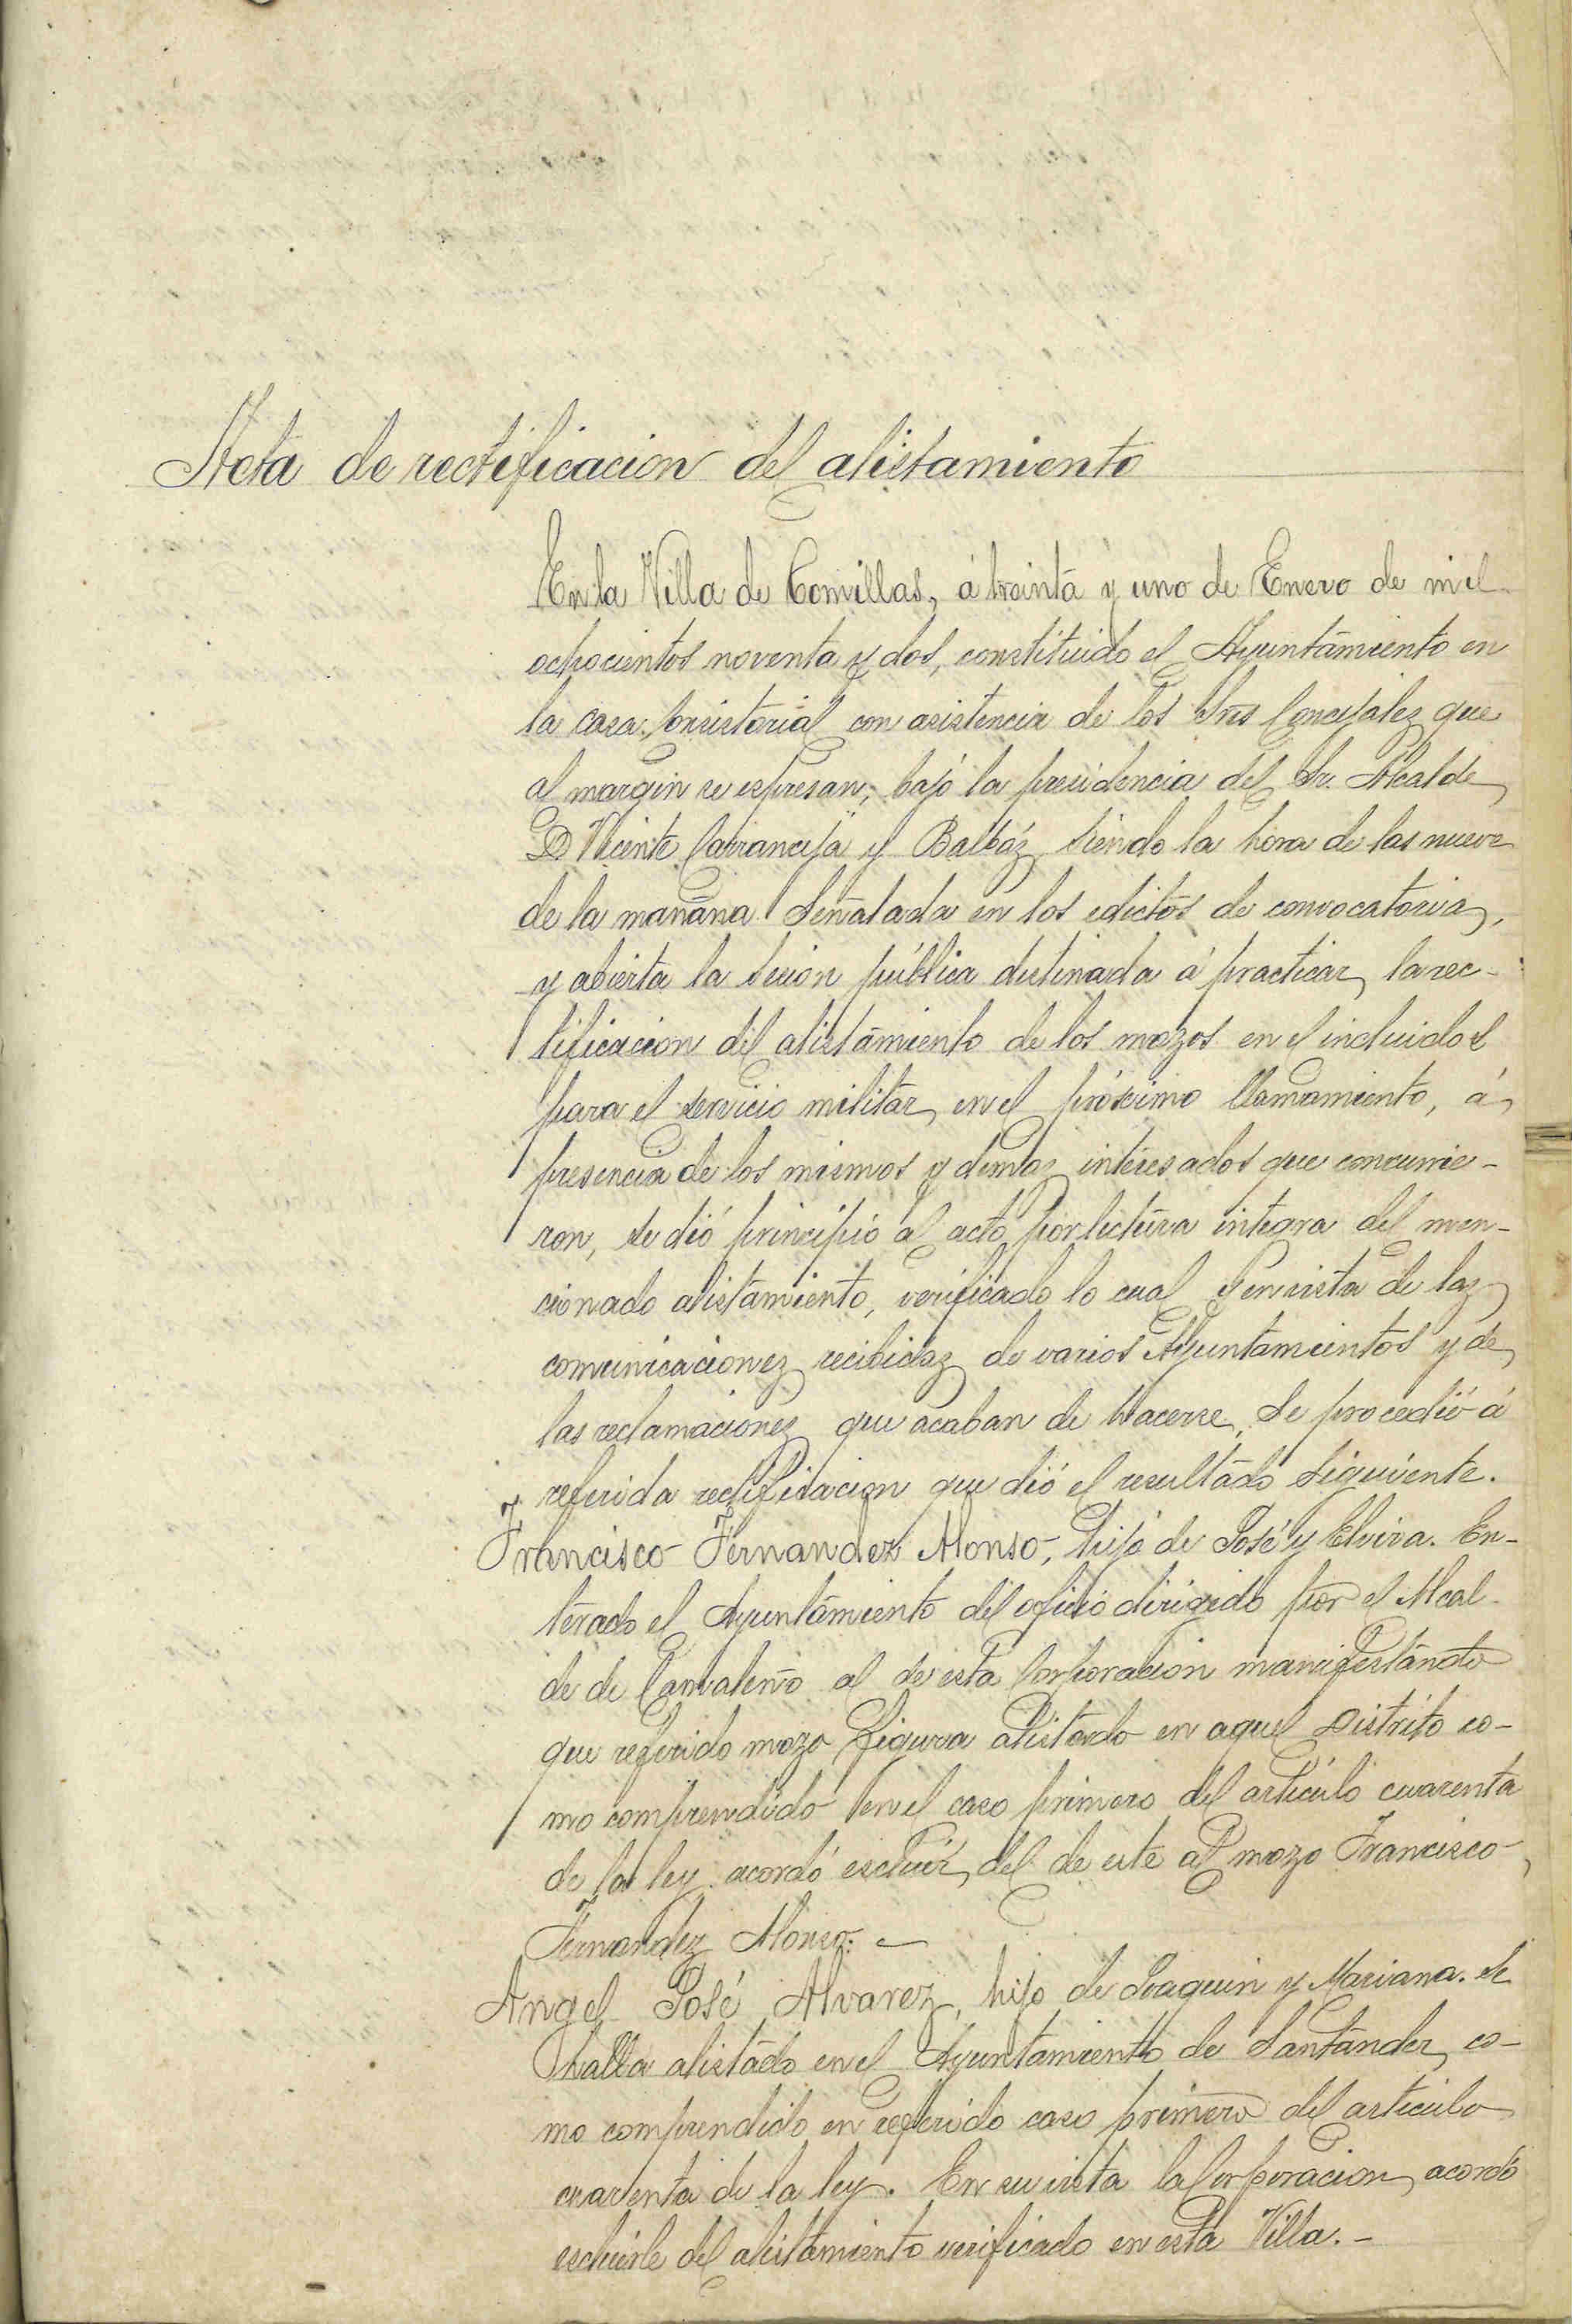 Acta de rectificacion del alistamiento
En la Villa de Comillas, á treinta y uno de Enero de mil
ochocientos noventa y dos, constituido el Ayuntamiento en
la casa Consistorial con asistencia de los Sres Concejales que
al margin se espresan, bajo la presidencia del Sr. Alcalde
D Vicente Carranceja y Balbáz siendo la hora de las nueve
de la mañana señalada en los edictos de convocatoria,
y abierta la secion pública destinada á practicar la rec-
tificacion del alistamiento de los mozos en el incluidos
para el servicio militar en el prósimo llamamiento, á
presencia de los mismos y demas interesados que concurrie-
ron, se dió principio al acto por lectura integra del men-
cionado alistamiento, verificado lo cual y en vista de las
comunicaciones recibidas de varios Ayuntamientos y de
las reclamaciones que acaban de hacerse, se procedió á
referida rectificacion que dió el resultado siguiente.
Francisco Fernandez Alonso, hijo de José y Elvira. En-
terado el Ayuntamiento del oficio dirigido por el Alcal-
de de Camaleño al de esta Corporacion manifestando
que referido mozo figura alistado en aquel Distrito co-
mo comprendido en el caso primero del artículo cuarenta
de la ley acordó escluir del de este al mozo Francisco
Fernandez Alonso. —
Angel José Alvarez, hijo de Joaquin y Mariana. Se
halla alistado en el Ayuntamiento de Santander, co-
mo comprendido en referido caso primero del articulo
cuarenta de la ley. En su vista la Corporacion acordó
escluirle del alistamiento verificado en esta Villa. -